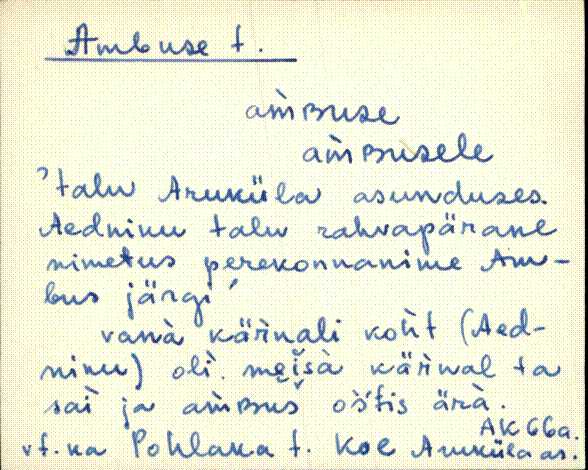 Ambuse t.
am̀ʙuse
am̀ʙusele
'talu Aruküla asunduses.
Aedninu talu rahvapärane
nimetus perekonnanime Am-
bus järgi'
vanà kär̀nali koh̀t (Aed-
ninu) olì. mei̯šà kär̀nal ta
saì ja am̀ʙus oš̀tis ärà.
AK 66a.
vt. ka Pohlaka t. Koe Aruküla as.